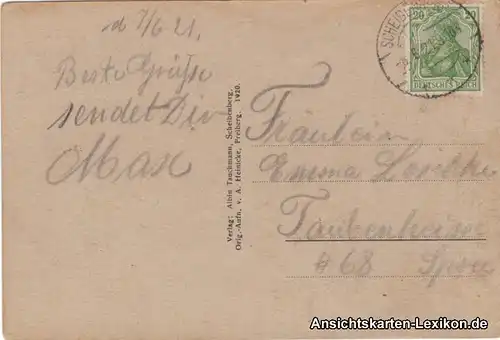 d 7/6 21.
Beste Grüsse
sendet Dir
Max
Verlag: Albin Tauchmann, Scheibenberg.
Orig.-Aufn. v. A. Heinicke, Freiberg. 1920.
SCHEIB
20
DEUTSCHES REICH
Fräulein
Emma
Taubenheim
# 68 Spree
Ansichtskarten-Lexikon.de